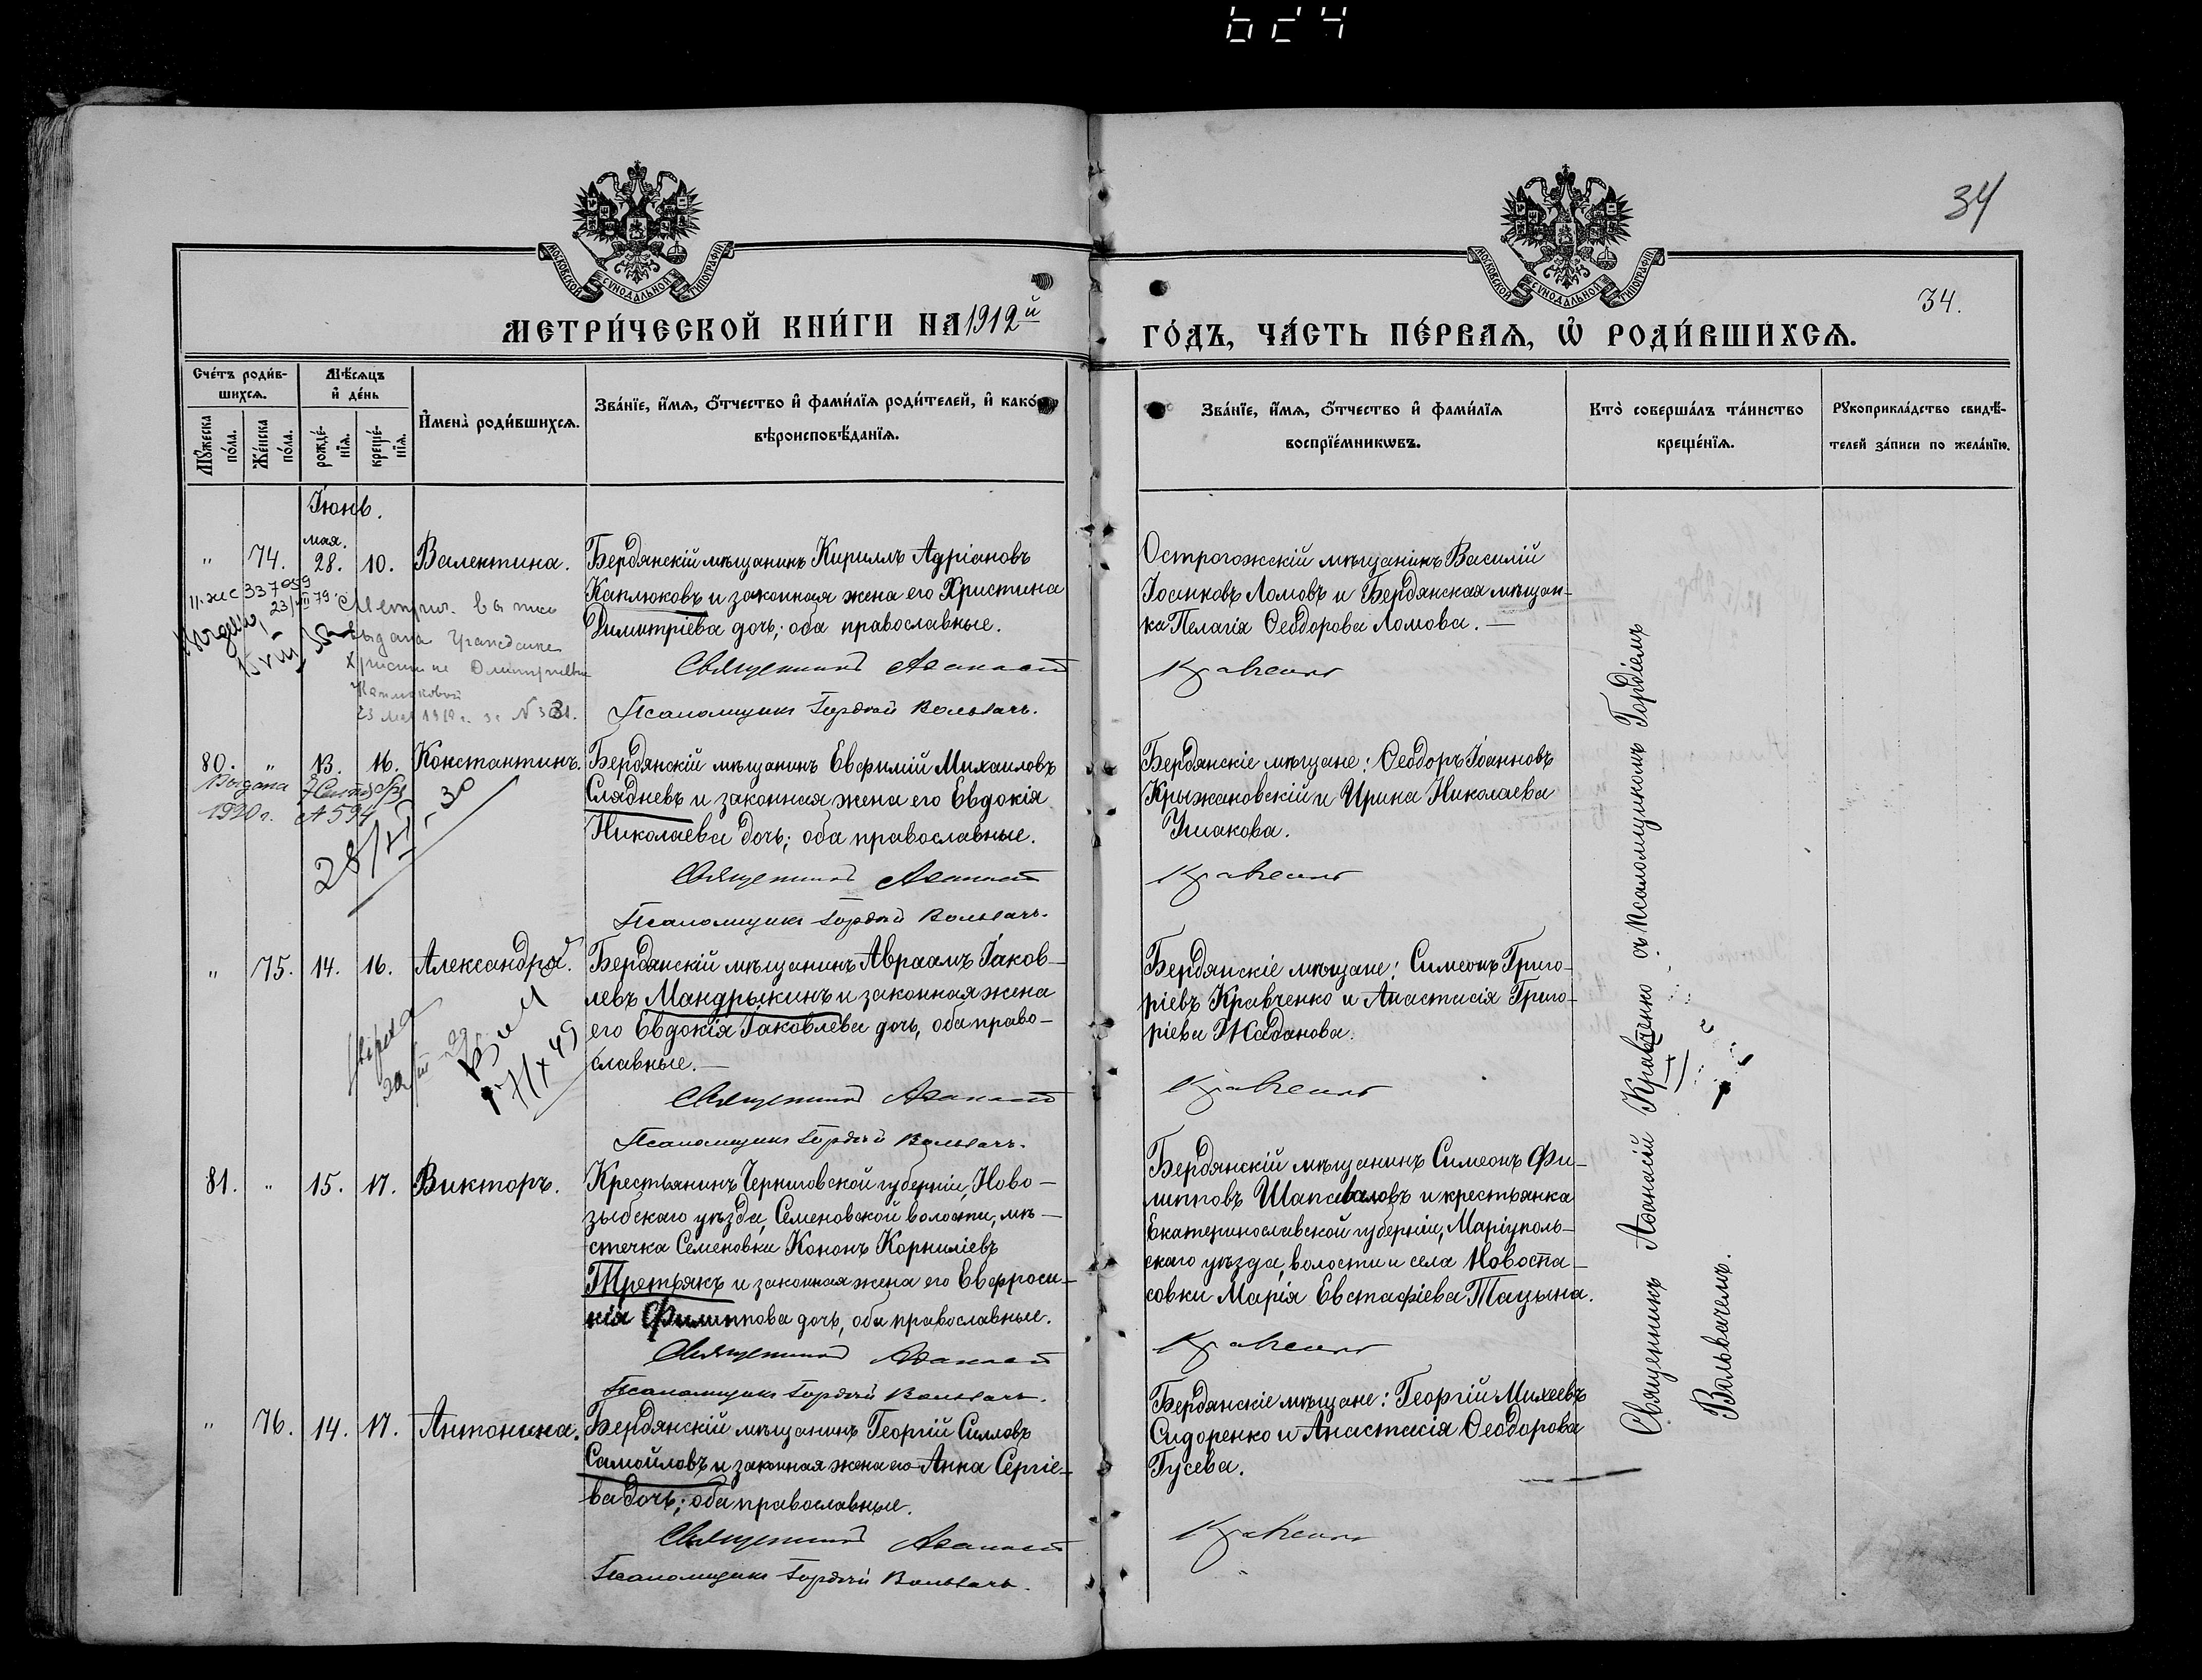 624
34
МОСКОВСКОЙ СУНОДАЛЬНОЙ ТИПОГРАФІИ
МОСКОВСКОЙ СУНОДАЛЬНОЙ ТИПОГРАФІИ
34.
МЕТРИ́ЧЕСКОЙ КНИ́ГИ НА 1912й
ГО́ДЪ, ЧА́СТЬ ПЕ́РВАѦ, Ѡ҆ РОДИ́ВШИХСѦ.
Сче́тъ роди́в-
шихсѧ.
Мѣ́сѧцъ
и҆ де́нь
Мꙋ́жеска по́ла.
Же́нска по́ла.
рожде́-нїѧ.
креще́-нїѧ.
И҆мена̀ роди́вшихсѧ.
Зва́нїе, и҆́мѧ, ѻ҆́тчество и҆ фами́лїѧ роди́телей, и҆ како́гѡ
вѣроисповѣ́данїѧ.
Зва́нїе, и҆́мѧ, ѻ҆́тчество и҆ фами́лїѧ
воспрїе́мникѡвъ.
Кто̀ соверша́лъ та́инство
креще́нїѧ.
Рꙋкоприкла́дство свидѣ́-
телей за́писи по жела́нїю.
Іюнь.
мая.
" 74. 28. 10. Валентина.
Бердянскій мѣщанинъ Кириллъ Адріановъ
Каплюковъ и законная жена его Христина
Димитріева дочь; оба православные.
Священникъ Аѳанасій
Псаломщикъ Гордій Вольвачъ.
Острогожскій мѣщанинъ Василій
Іоанновъ Ломовъ и Бердянская мѣщан-
ка Пелагія Ѳеодорова Ломова.
Кравченко
Метрич.
выдана Гражданке
Христине Дмитриевне
Каплюковой
23 мая 1919 г. за N 331.
80. " 13. 16. Константинъ.
Бердянскій мѣщанинъ Евфимій Михаиловъ
Слядневъ и законная жена его Евдокія
Николаева дочь; оба православные.
Священникъ Аѳанасій
Псаломщикъ Гордій Вольвачъ.
Бердянскіе мѣщане: Ѳеодоръ Іоанновъ
Крыжановскій и Ирина Николаева
Ушакова.
Кравченко
Выдана
1920 г. № 594
" 75. 14. 16. Александра.
Бердянскій мѣщанинъ Авраамъ Іаков-
левъ Мандрыкинъ и законная жена
его Евдокія Іаковлева дочь, оба право-
славные.
Священникъ Аѳанасій
Псаломщикъ Гордій Вольвачъ.
Бердянскіе мѣщане: Симеонъ Григо-
ріевъ Кравченко и Анастасія Григо-
ріева Жаданова.
Кравченко
81. " 15. 17. Викторъ.
Крестьянинъ Черниговской губерніи, Ново-
зыбскаго уѣзда, Семеновской волости, мѣ-
стечка Семеновки Кононъ Корниліевъ
Третьякъ и законная жена его Евфроси-
нія Филиппова дочь, оба православные.
Священникъ Аѳанасій
Псаломщикъ Гордій Вольвачъ.
Бердянскій мѣщанинъ Симеонъ Фи-
липповъ Шаповаловъ и крестьянка
Екатеринославской губерніи, Маріуполь-
скаго уѣзда, волости и села Новоспа-
совки Марія Евстафіева Тацына.
Кравченко
" 76. 14. 17. Антонина.
Бердянскій мѣщанинъ Георгій Силловъ
Самойловъ и законная жена его Анна Сергіе-
ва дочь; оба православные.
Священникъ Аѳанасій
Псаломщикъ Гордій Вольвачъ.
Бердянскіе мѣщане: Георгій Михеевъ
Сидоренко и Анастасія Ѳеодорова
Гусева.
Кравченко
Священникъ Аѳанасій Кравченко съ псаломщикомъ Гордіемъ
Вольвачемъ.